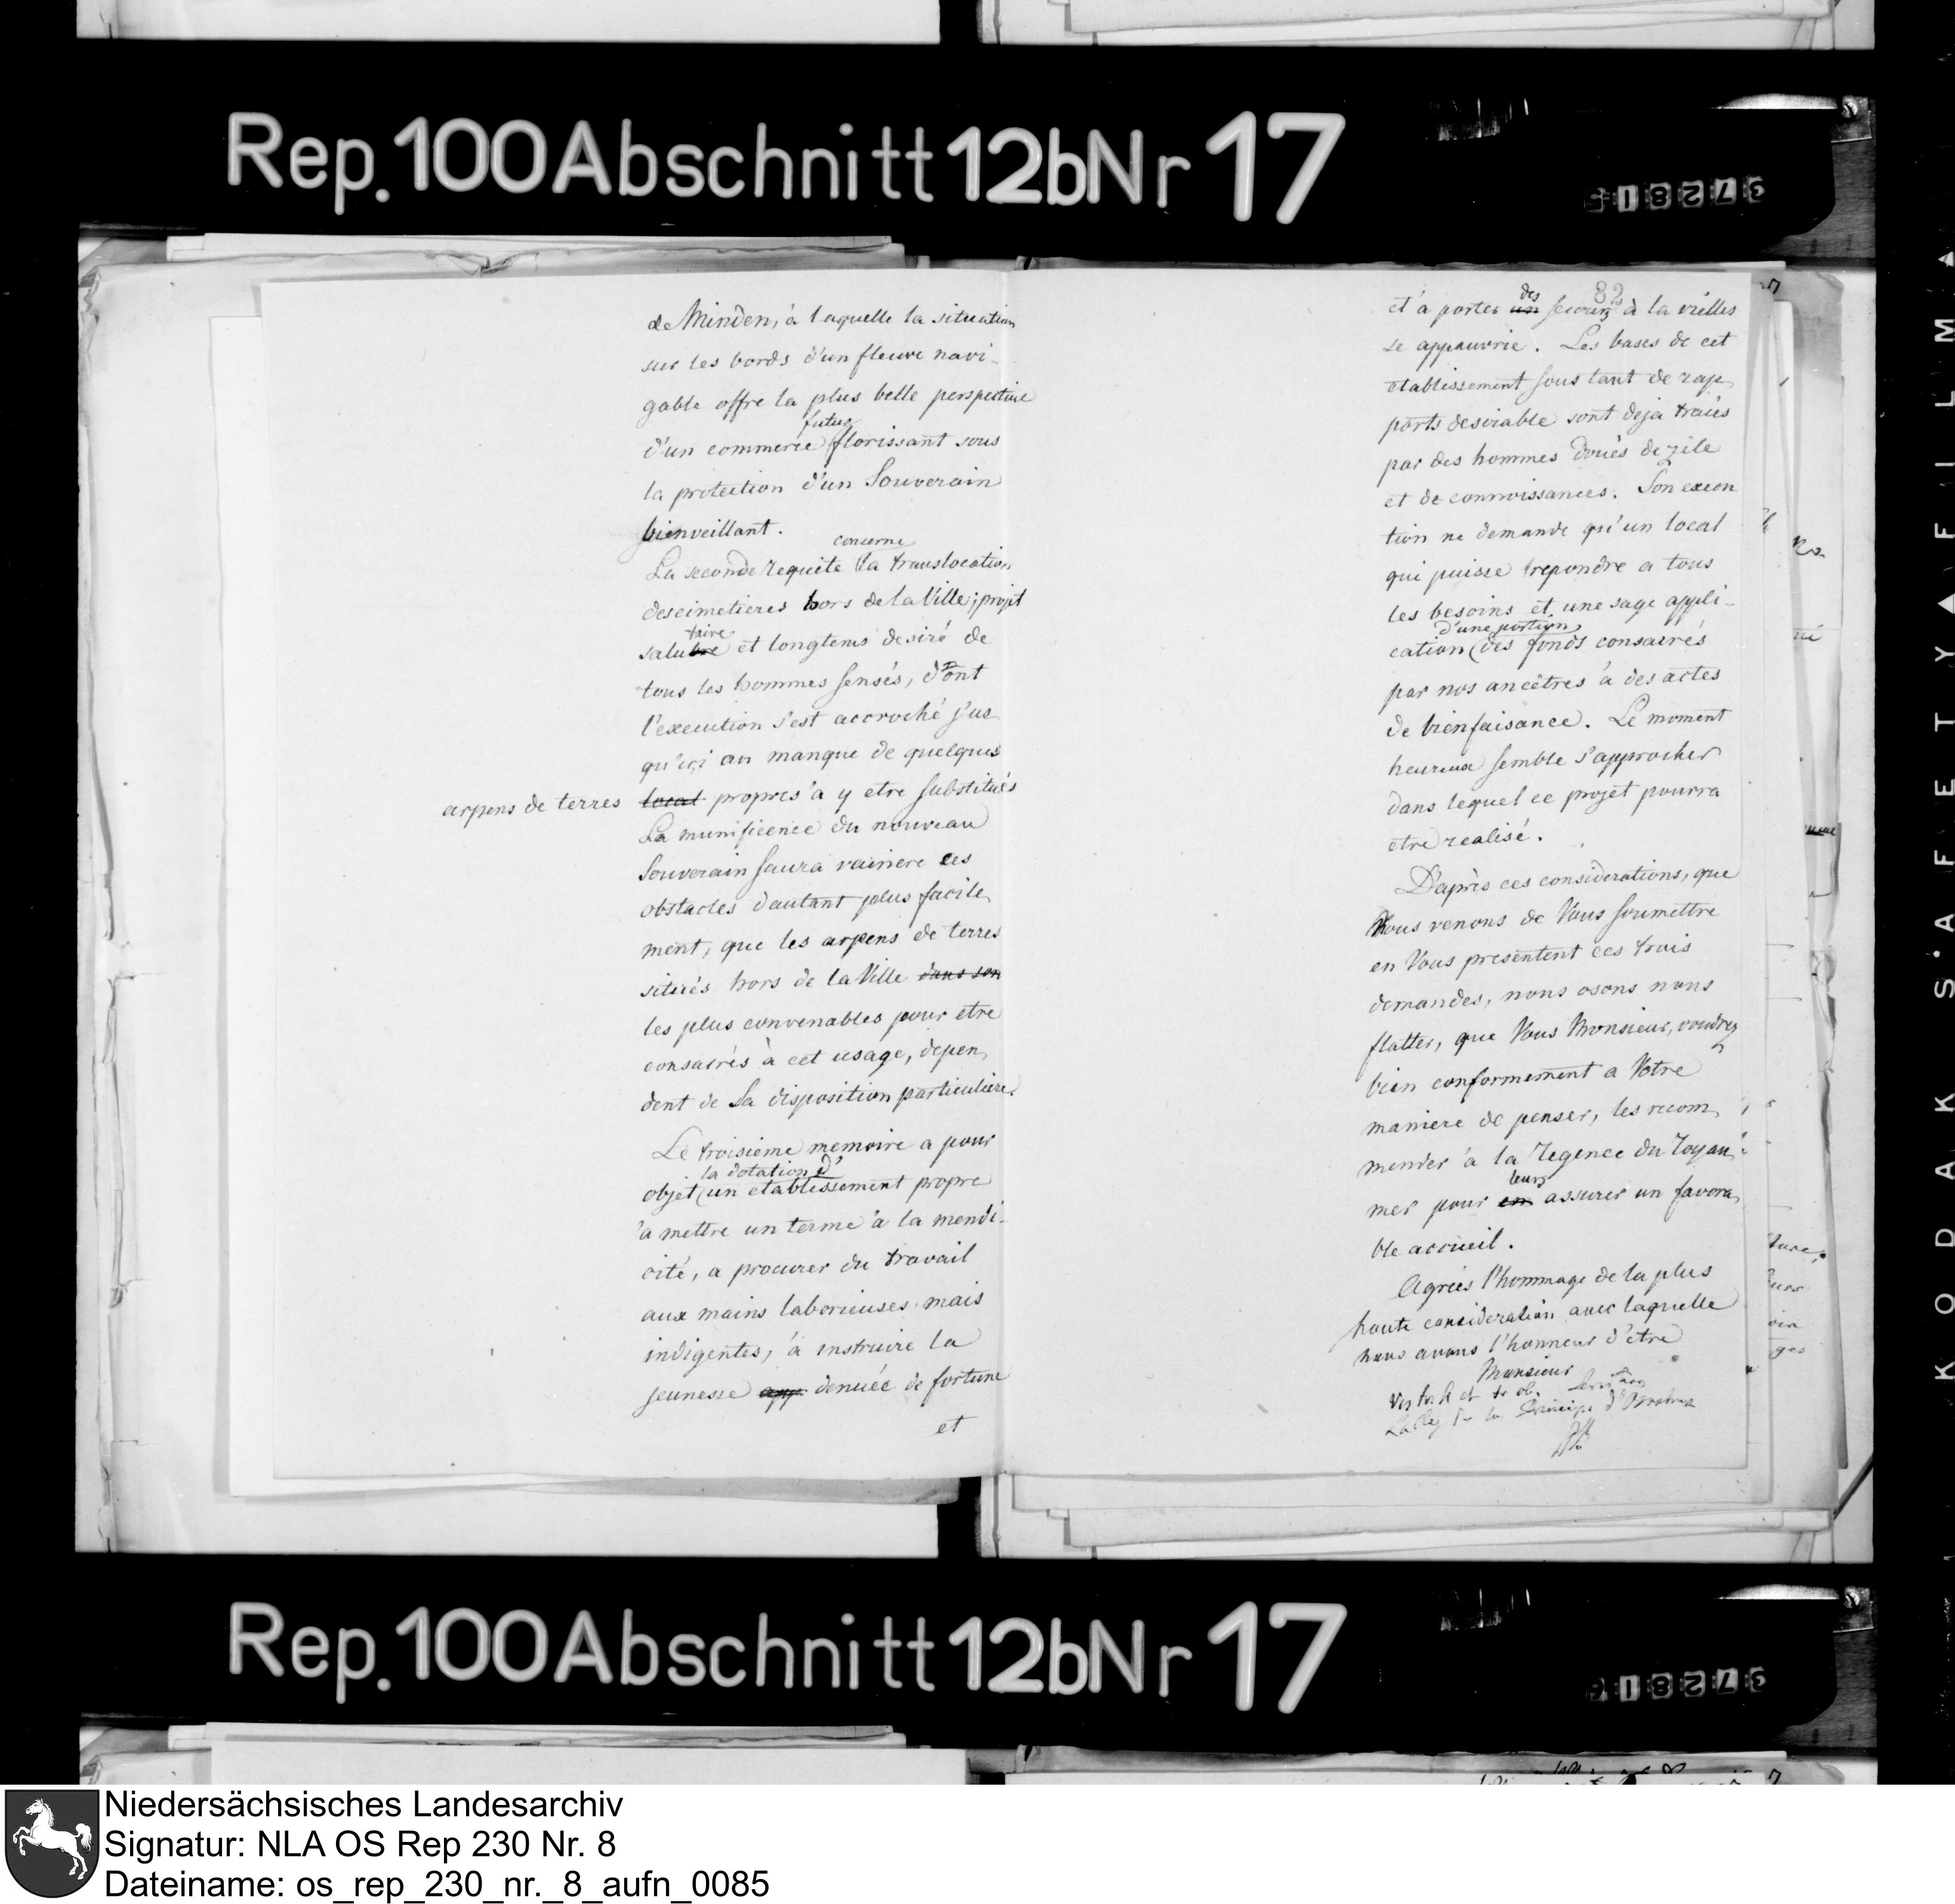 Rep. 100 Abschnitt 12b Nr 17
37281
de Minden, à laquelle la situation
sur les bords d'un fleuve navi-
gable offre la plus belle perspective
futur
d'un commerce florissant sous
la protection d'un Souverain
bienveillant.
concerne
La seconde requete la translocation
des cimetieres hors de la Ville; projet
taire
salubre et longtems desiré de
tous les hommes sensés, dont
l'execution s'est accroché jus
qu'içi au manque de quelques
arpens de terres local propres à y etre substitués
La munificence du nouveau
Souverain saura vaincre ces
obstacles d'autant plus facile,
ment, que les arpens de terres
situés hors de la Ville dans son
les plus convenables pour etre
consacrés à cet usage, depen,
dent de Sa disposition particuliere.
Le troisieme memoire a pour
la dotation d'
objet un etablissement propre
à mettre un terme à la mendi-
cité, a procurer du travail
aux mains laborieuses mais
indigentes, à instruire la
jeunesse app denuée de fortune
et
82
des
et à porter un secours à la vielles
se appauvrie. Les bases de cet
etablissement sous tant de rap,
ports desirable sont deja tracés
par des hommes doués de zéle
et de connoissances. Son execu
tion ne demande qu'un local
qui puisse repondre a tous
les besoins et une sage appli-
d'une portion
cation des fonds consacrés
par nos ancêtres à des actes
de bienfaisance. Le moment
heureux semble s'approcher
dans lequel ce projet pourra
etre realisé.
D'après ces considerations, que
Nous venons de Vous soumettre
en Vous presentent ces trois
demandes, nous osons nous
flatter, que Vous Monsieur, voudrez
bien conformement a Votre
maniere de penser, les recom,
mender à la Regence du Royau-
leur
mes pour en assurer un favora,
ble accueil.
Agréés l'hommage de la plus
haute consideration avec laquelle
nous avons l'honneur d'etre
Monsieur
Rep. 100 Abschnitt 12b Nr 17
37281
KODAK SAFETY FILM
Niedersächsisches Landesarchiv
Signatur: NLA OS Rep 230 Nr. 8
Dateiname: os_rep_230_nr._8_aufn_0085